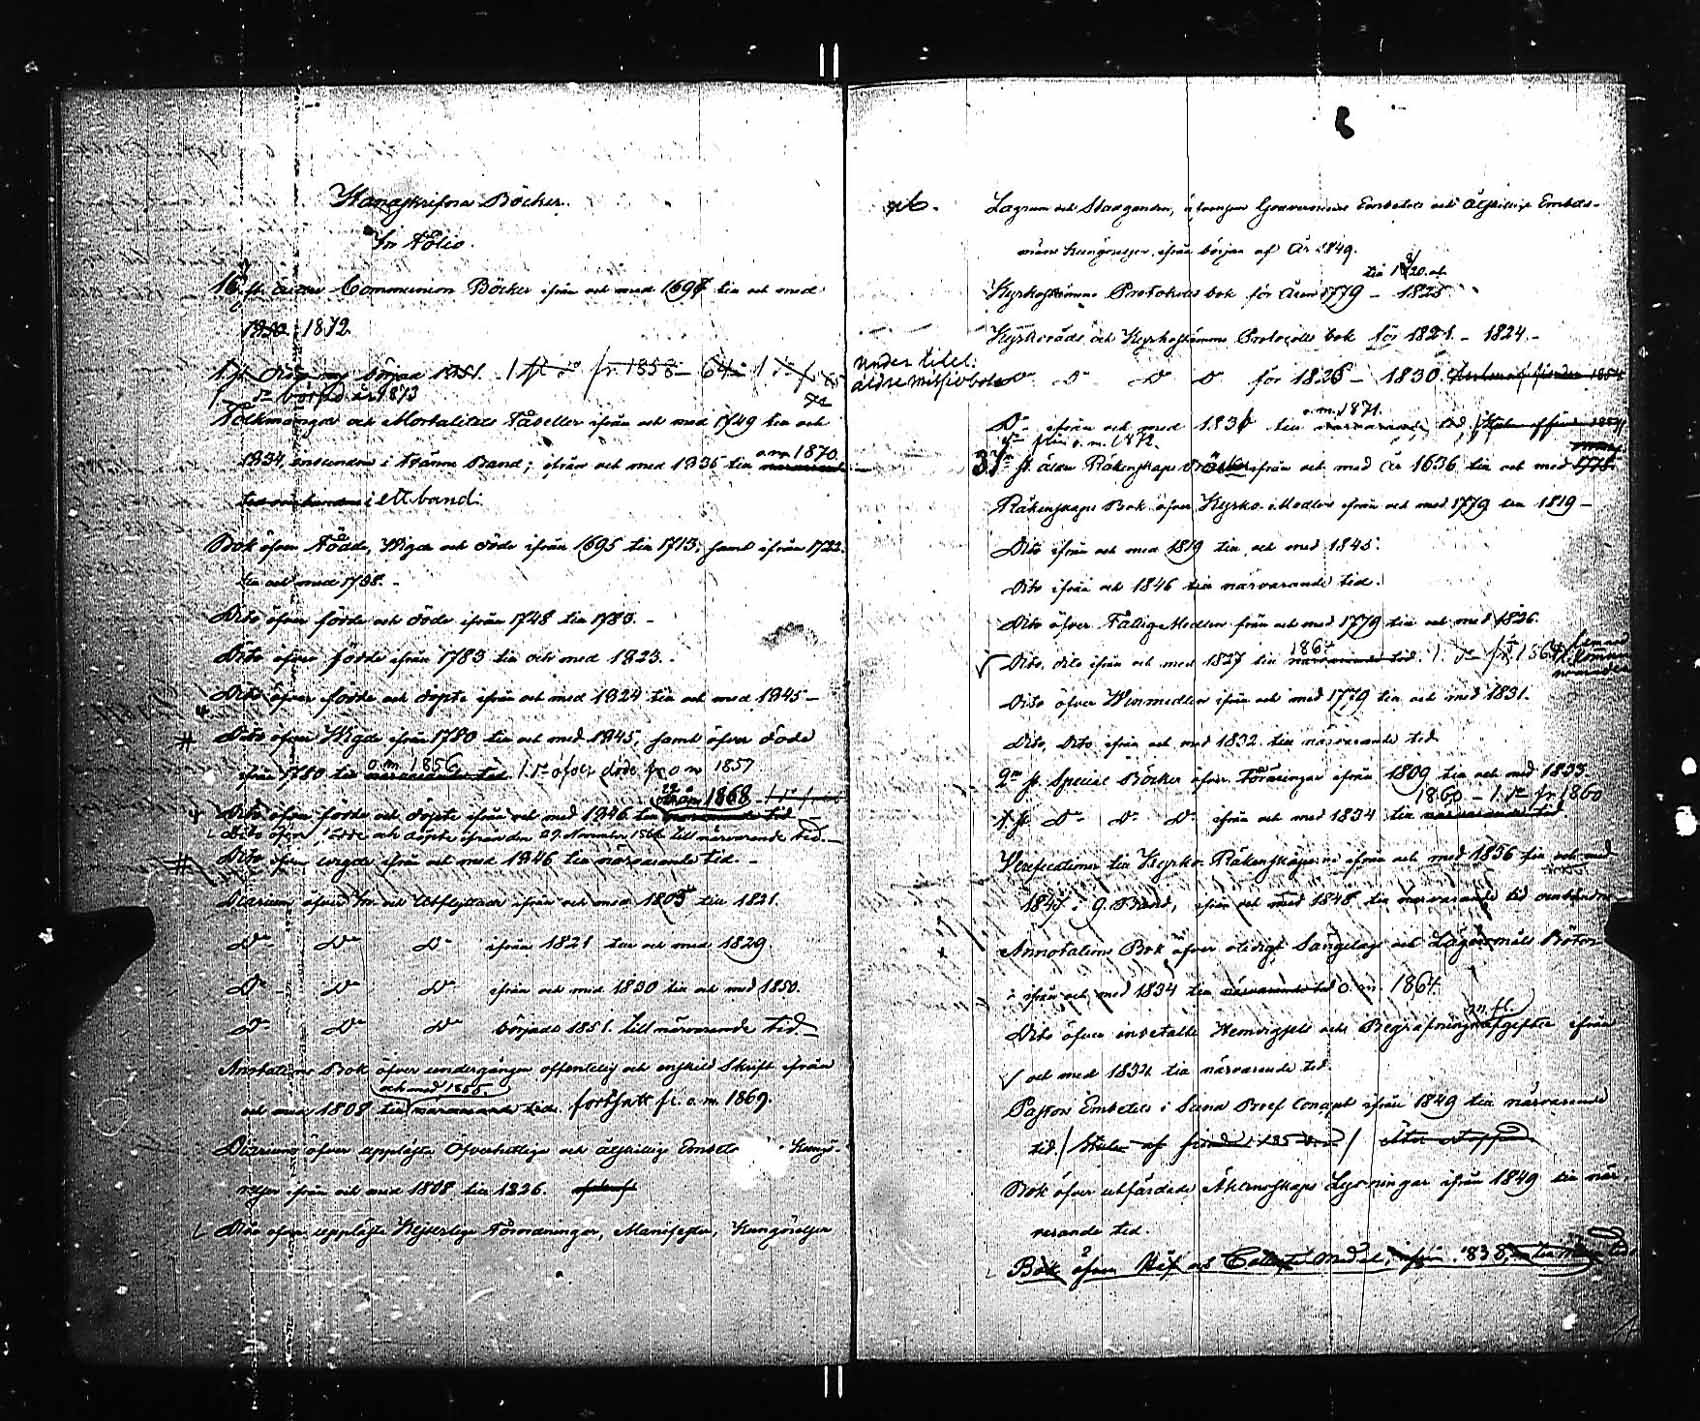 Handskrifna Böcker.
In Folio.
16 st. äldre Communion Böcker ifrån och med 1697 till och med
1850 1872
1 st började 1851. 1 st do fr. 1858 - 64
1 do börjad år 1873
Folkmängds och Mortalitets Tabeller ifrån och med 1749 till och
o.m. 1870
1834, inbundne i Tvänne Band; ifrån och med 1835 till närvarande
tid i ett band.
Bok öfver Födde, Wigde och döde ifrån 1695 till 1713; samt ifrån 1722
till och med 1738. -
Dito öfver födde och döde ifrån 1748 till 1780. -
Dito öfver födde ifrån 1783 till och med 1823. -
Dito öfver födde och döpte ifrån och med 1824 till och med 1845 -
# Dito öfver Wigde ifrån 1780 till och med 1845, samt öfver döde
o.m 1856
ifrån 1780 till närvarande tid. 1 do öfver döde fr o m 1857
början 1868
Dito öfver födde och döpte ifrån och med 1846 till närvarande tid -
Dito öfver födde och döpte ifrån den 29 November 1868 till närvarande tid. -
# Dito öfver wigde ifrån och med 1846 till närvarande tid -
Diarium öfver In och Utflyttade ifrån och med 1805 till 1821.
Do Do Do ifrån 1821 till och med 1829.
Do - Do Do ifrån och med 1830 till och med 1850.
Do Do Do började 1851. till närvarande tid.
Anotations Bok öfver undergången offentelig och enskild Skrift ifrån
och med 1855.
och med 1808 till närvarande tid. fortsatt fr. o. m 1869.
Diarium öfver uppläste Öfverhetliga och åtskillige Embets Kungö-
relser ifrån och med 1808 till 1836.
Dito öfver uppläste Kejserlige Förordningar, Manifester, Kungörelser
Lagrum och Stadganden, Gouverneurs Embetets och åtskillige Embets-
mäns Kungörelser, ifrån början af År 1849.
till 1820.
Kyrkostämmo Protokolls bok för Åren 1779 - 1825
Kyrkoråds och Kyrkostämmo Protocolls bok för 1821 - 1824. -
under titel:
äldre missivbok Do Do Do Do för 1825 - 1830.
o.m. 1871.
Do ifrån och med 1831 till närvarande tid
do från o. m. 1872.
37 st. äldre Räkenskaps Böcker ifrån och med år 1636 till och med 1778
Räkenskaps Bok öfver Kyrko-Medlen ifrån och med 1779 till 1819 -
Dito ifrån och med 1819 till och med 1845.
Dito ifrån och 1846 till närvarande tid.
Dito öfver Fattig Medlen från och med 1779 till och med 1826.
1864
Dito, dito ifrån och med 1827 till närvarande tid. 1 do fr. 1864
Dito öfver Winmedlen ifrån och med 1779 till och med 1831.
Dito, Dito ifrån och med 1832 till närvarande tid.
2 st Special Böcker öfver Täringar ifrån 1809 till och med 1833.
1860 - 1 do fr 1860
1. st Do Do Do ifrån och med 1834 till närvarande tid
Verificationer till Kyrko Räkenskaperne ifrån och med 1836 till och med
1847 i 9 Band, ifrån och med 1848 till närvarande tid
Annotations Bok öfver otidigt Sängelag och Lägersmåls Böter
ifrån och med 1834 till närvarande tid o. m. 1864
Dito öfver inbetalte Hemvigsels och Begrafningsafgifter ifrån
och med 1834 till närvarande tid.
Pastors Embetets i Sund Bref Concept ifrån 1849 till närvarande
tid
Bok öfver utfärdade Äktenskaps Lysningar ifrån 1849 till när-
varande tid.
Bok öfver Håf och Collect Medel, ifrån 1838, till